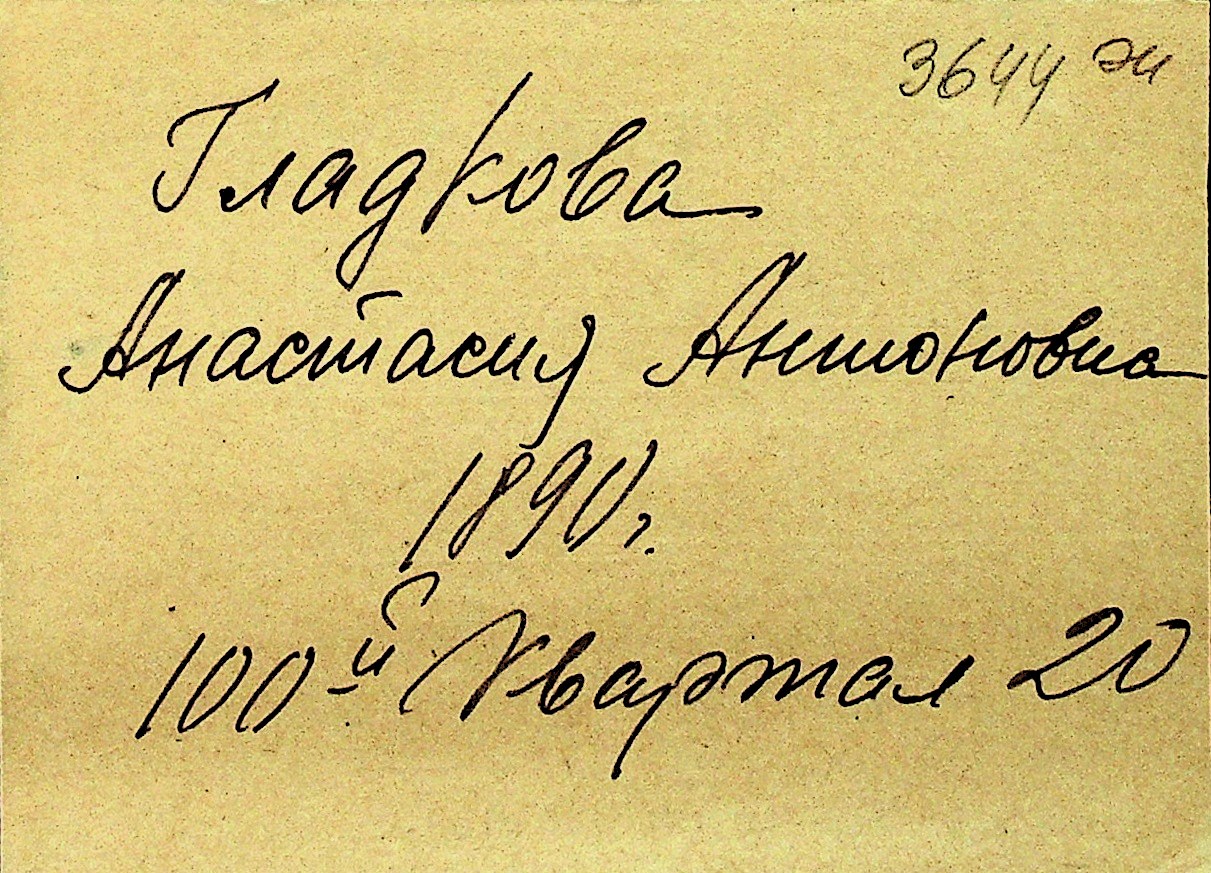 3644 эи
Гладкова
Анастасия Антоновна
1890г.
100й Квартал 20